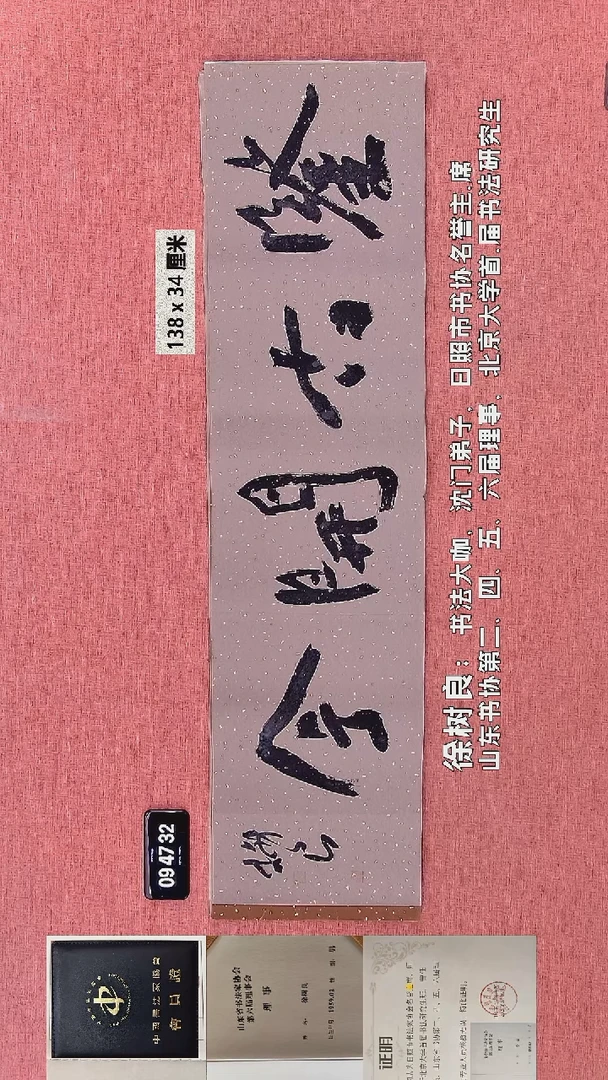 138 x 34 厘米
古開今
樹良
徐树良：书法大咖，沈门弟子，日照市书协名誉主席
山东书协第二、四、五、六届理事，北京大学首届书法研究生
09 47 32
中國書法家協會
會員證
山东省书法家协会
第六届理事会
理事
证明